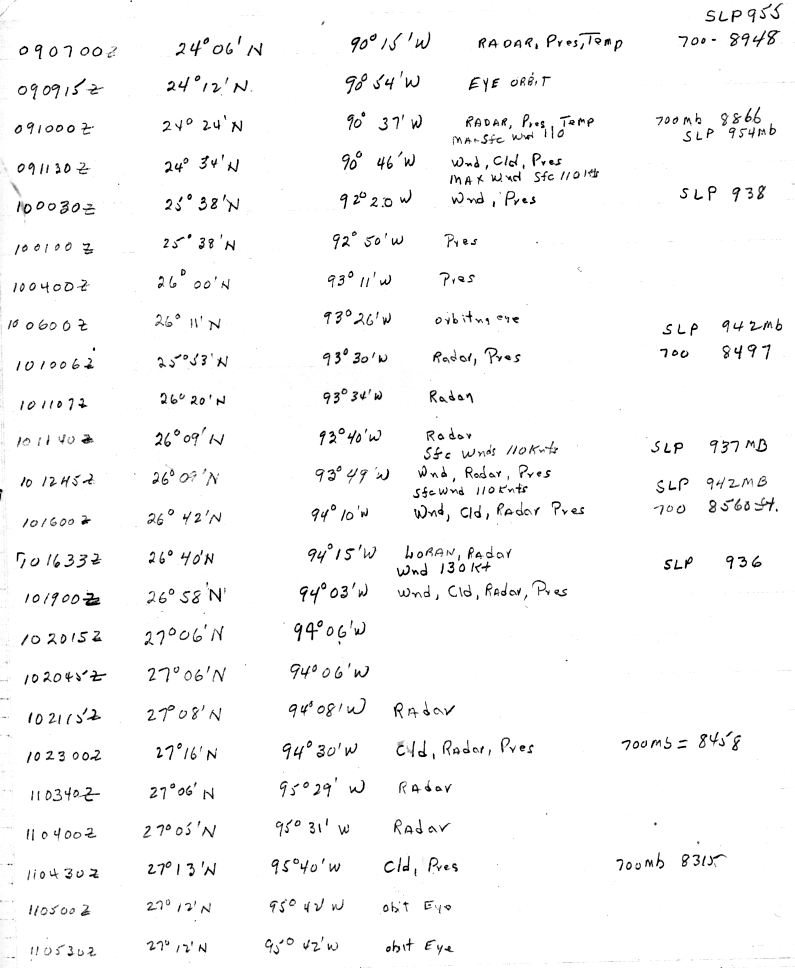 SLP 955
090700Z 24° 06' N 90° 15' W RADAR, Pres, Temp 700 - 8948
090915Z 24° 12' N. 90° 54' W EYE ORBIT
091000Z 24° 24' N 90° 37' W RADAR, Pres, Temp 700mb 8866
MAX Sfc Wnd 110 SLP 954mb
091130Z 24° 34' N 90° 46' W Wnd, Cld, Pres
MAX Wnd Sfc 110 Kts
100030Z 25° 38' N 92° 20 W Wnd, Pres SLP 938
100100Z 25° 38' N 92° 50' W Pres
100400Z 26° 00' N 93° 11' W Pres
100600Z 26° 11' N 93° 26' W orbitng eye
SLP 942mb
101006Z 25° 53' N 93° 30' W Radar, Pres 700 8497
101107Z 26° 20' N 93° 34' W Radar
101140Z 26° 09' N 93° 40' W Radar
Sfc Wnds 110 Knts SLP 937 MB
101245Z 26° 09' N 93° 49' W Wnd, Radar, Pres
Sfc Wnd 110 Knts SLP 942 MB
101600Z 26° 42' N 94° 10' W Wnd, Cld, Radar Pres 700 8560 ft.
101633Z 26° 40' N 94° 15' W LORAN, Radar
Wnd 130 Kt SLP 936
101900Z 26° 58' N 94° 03' W Wnd, Cld, Radar, Pres
102015Z 27° 06' N 94° 06' W
102045Z 27° 06' N 94° 06' W
102115Z 27° 08' N 94° 08' W Radar
102300Z 27° 16' N 94° 30' W Cld, Radar, Pres 700mb = 8458
110340Z 27° 06' N 95° 29' W Radar
110400Z 27° 05' N 95° 31' W Radar
110430Z 27° 13' N 95° 40' W Cld, Pres 700mb 8315
110500Z 27° 12' N 95° 42' W obit Eye
110530Z 27° 12' N 95° 42' W obit Eye